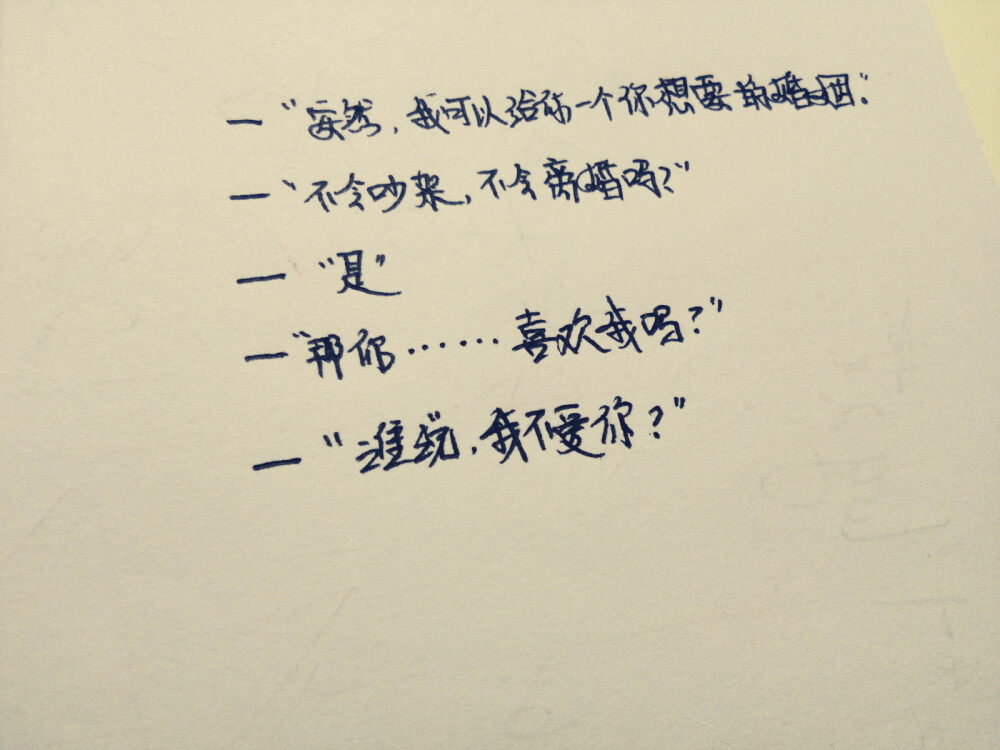 — “安然，我可以给你一个你想要的婚姻.”
— “不会吵架，不会离婚吗？”
— “是”
— “那你……喜欢我吗？”
— “谁说，我不爱你？”